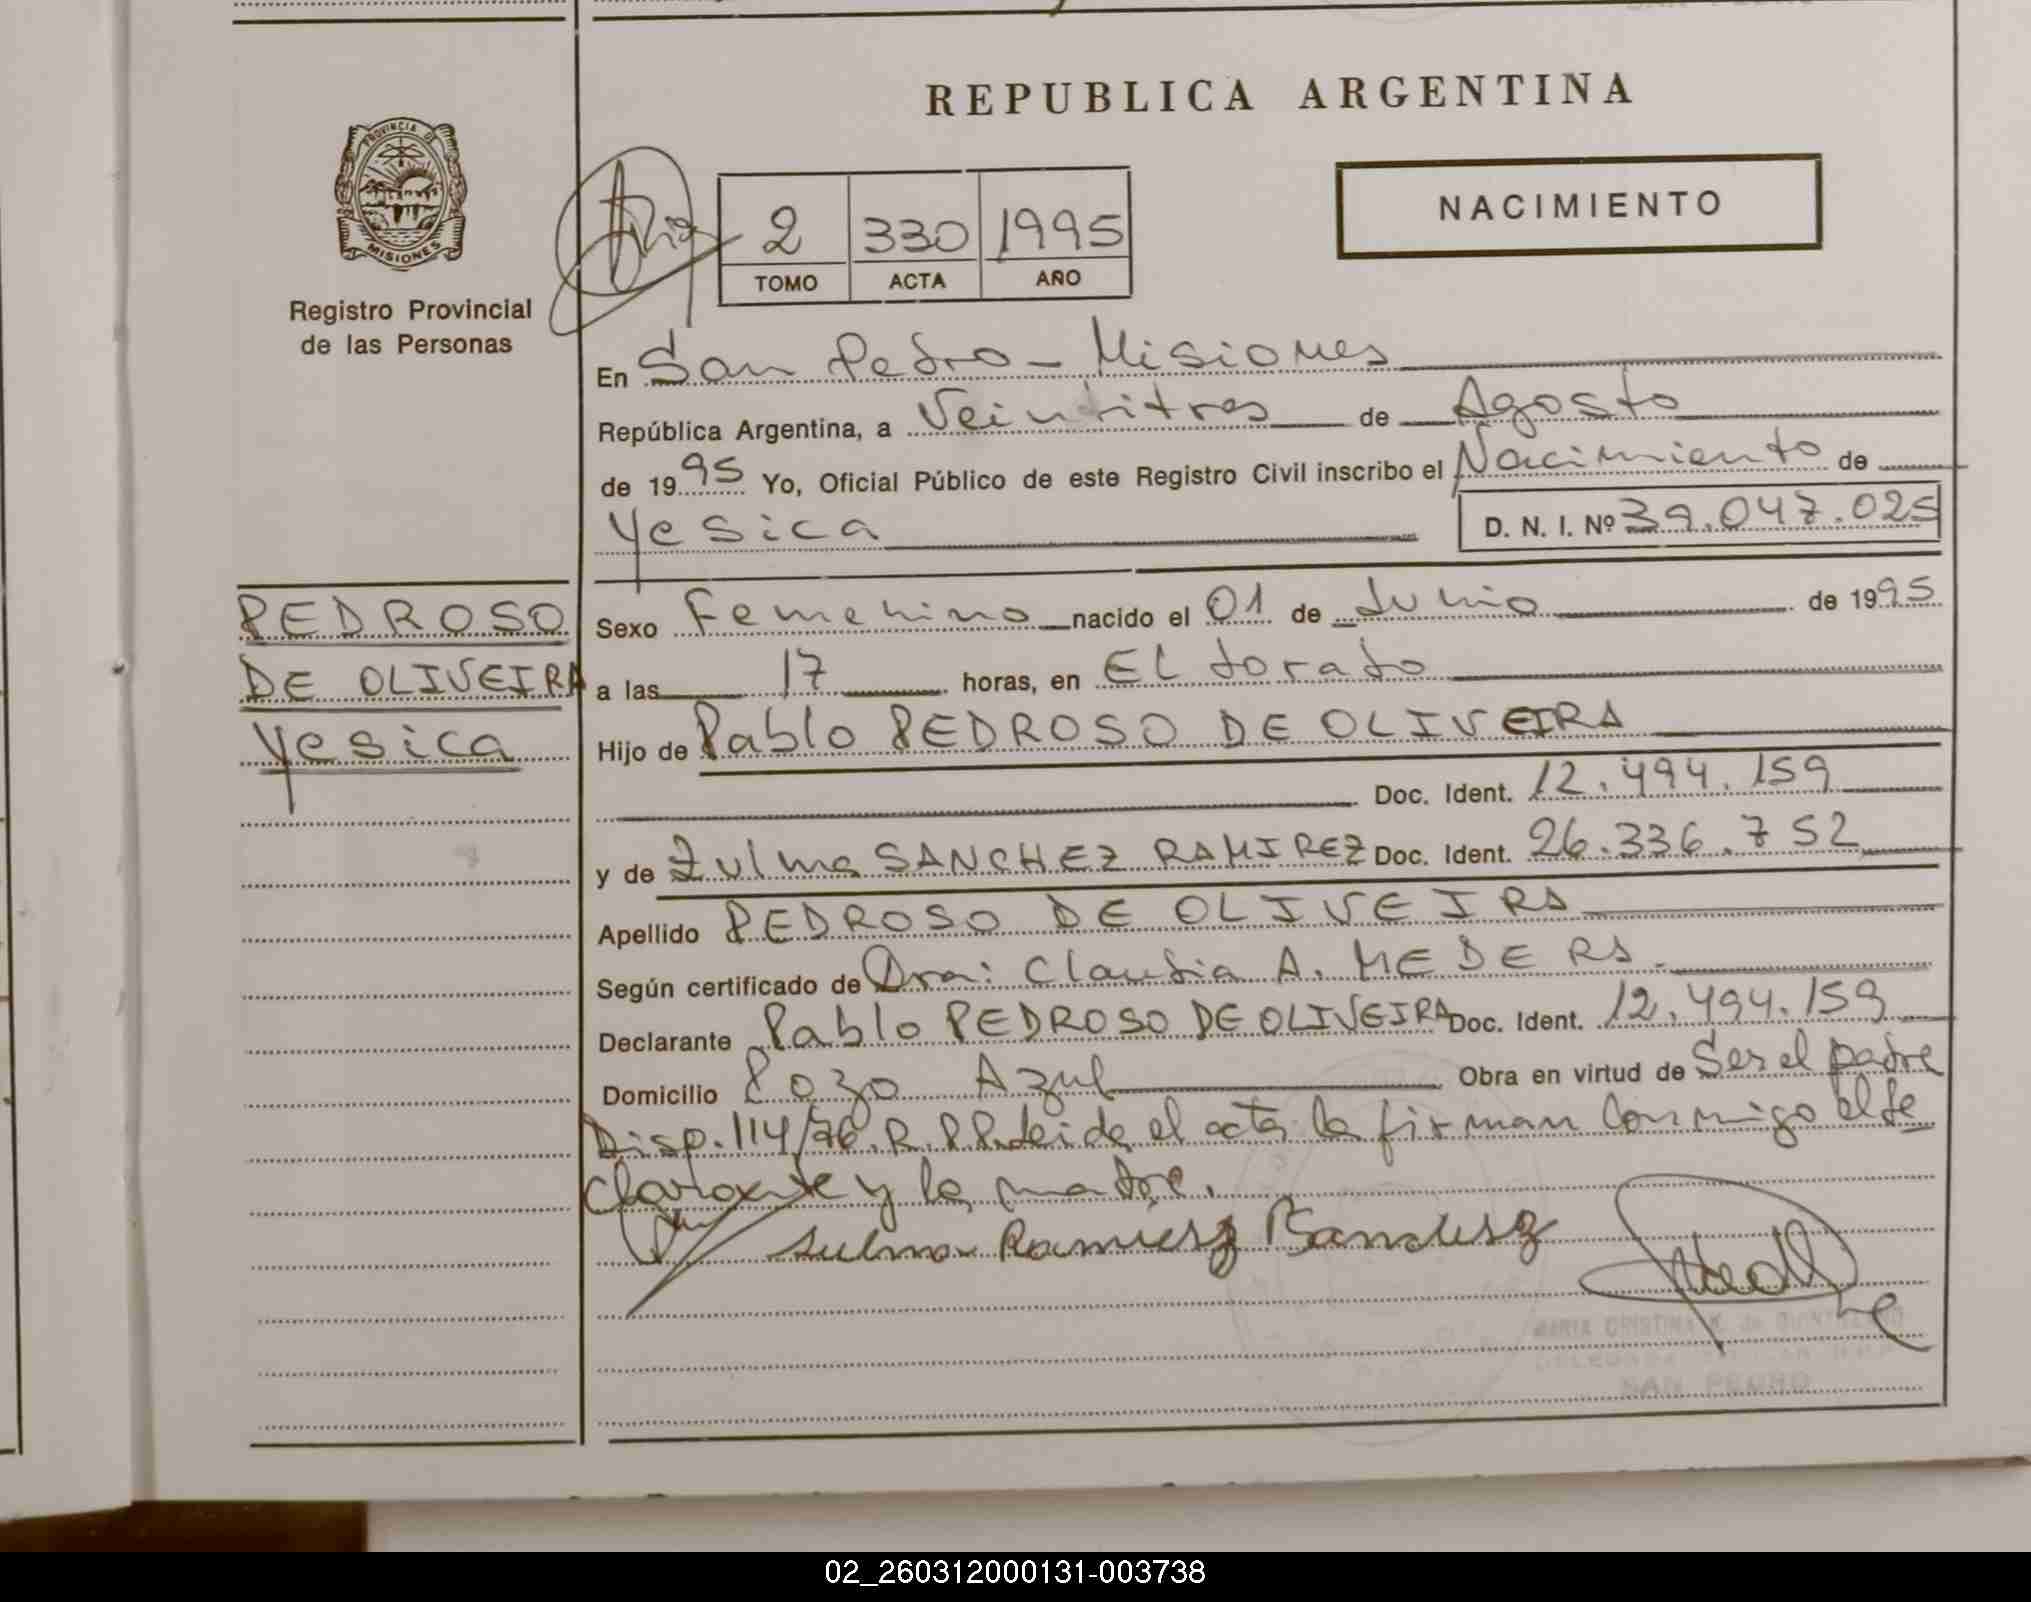 REPUBLICA ARGENTINA
PROVINCIA DE
MISIONES
Registro Provincial
de las Personas
2 330 1995
TOMO ACTA AÑO
NACIMIENTO
En San Pedro - Misiones
República Argentina, a Veintitres de Agosto
de 1995 Yo, Oficial Público de este Registro Civil inscribo el Nacimiento de
Yesica D. N. I. Nº 39.047.025
PEDROSO
DE OLIVEIRA
Yesica
Sexo Femenino nacido el 01 de Junio de 1995
a las 17 horas, en El dorado
Hijo de Pablo PEDROSO DE OLIVEIRA
Doc. Ident. 12.494.159
y de Zulma SANCHEZ RAMIREZ Doc. Ident. 26.336.752
Apellido PEDROSO DE OLIVEIRA
Según certificado de Dra: Claudia A. MEDERA
Declarante Pablo PEDROSO DE OLIVEIRA Doc. Ident. 12.494.159
Domicilio Pozo Azul Obra en virtud de Ser el padre
Disp. 114/76. R.P.P. Leida el acta la firman Conmigo el de
clarante y la madre.
Sulma Ramirez
MARIA CRISTINA
SAN PEDRO
02_260312000131-003738